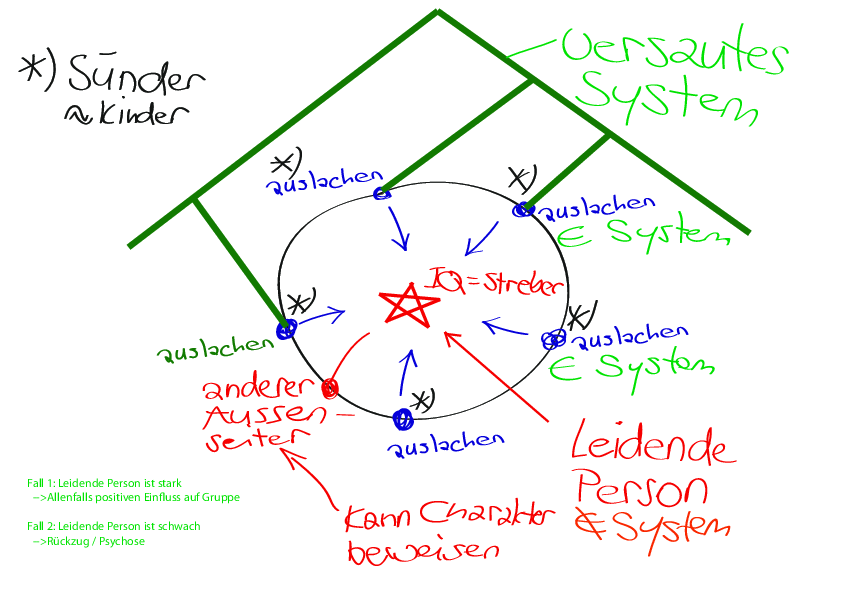 *) Sünder
≈ Kinder
Versautes
System
*)
auslachen
*)
auslachen
∈ System
IQ=Streber
*)
auslachen
*)
auslachen
∈ System
anderer
Aussen-
seiter
*)
auslachen
Leidende
Person
∉ System
Kann Charakter
beweisen
Fall 1: Leidende Person ist stark
-->Allenfalls positiven Einfluss auf Gruppe
Fall 2: Leidende Person ist schwach
-->Rückzug / Psychose